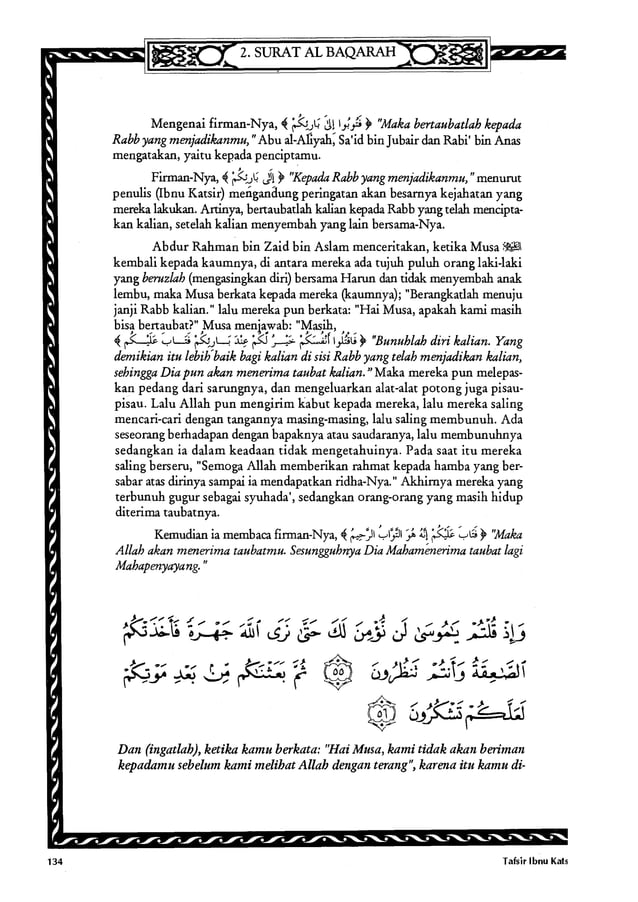 2. SURAT AL BAQARAH
Mengenai firman-Nya, ﴾ فَتُوبُوا إِلَىٰ بَارِئِكُمْ ﴿ "Maka bertaubatlah kepada
Rabb yang menjadikanmu," Abu al-Aliyah, Sa'id bin Jubair dan Rabi' bin Anas
mengatakan, yaitu kepada penciptamu.
Firman-Nya, ﴾ إِلَىٰ بَارِئِكُمْ ﴿ "Kepada Rabb yang menjadikanmu," menurut
penulis (Ibnu Katsir) mengandung peringatan akan besarnya kejahatan yang
mereka lakukan. Artinya, bertaubatlah kalian kepada Rabb yang telah mencipta-
kan kalian, setelah kalian menyembah yang lain bersama-Nya.
Abdur Rahman bin Zaid bin Aslam menceritakan, ketika Musa
kembali kepada kaumnya, di antara mereka ada tujuh puluh orang laki-laki
yang beruzlah (mengasingkan diri) bersama Harun dan tidak menyembah anak
lembu, maka Musa berkata kepada mereka (kaumnya); "Berangkatlah menuju
janji Rabb kalian." lalu mereka pun berkata: "Hai Musa, apakah kami masih
bisa bertaubat?" Musa menjawab: "Masih,
﴾ فَاقْتُلُوا أَنْفُسَكُمْ ذَلِكُمْ خَيْرٌ لَكُمْ عِنْدَ بَارِئِكُمْ فَتَابَ عَلَيْكُمْ ﴿ "Bunuhlah diri kalian. Yang
demikian itu lebih baik bagi kalian di sisi Rabb yang telah menjadikan kalian,
sehingga Dia pun akan menerima taubat kalian." Maka mereka pun melepas-
kan pedang dari sarungnya, dan mengeluarkan alat-alat potong juga pisau-
pisau. Lalu Allah pun mengirim kabut kepada mereka, lalu mereka saling
mencari-cari dengan tangannya masing-masing, lalu saling membunuh. Ada
seseorang berhadapan dengan bapaknya atau saudaranya, lalu membunuhnya
sedangkan ia dalam keadaan tidak mengetahuinya. Pada saat itu mereka
saling berseru, "Semoga Allah memberikan rahmat kepada hamba yang ber-
sabar atas dirinya sampai ia mendapatkan ridha-Nya." Akhirnya mereka yang
terbunuh gugur sebagai syuhada', sedangkan orang-orang yang masih hidup
diterima taubatnya.
Kemudian ia membaca firman-Nya, ﴾ فَتَابَ عَلَيْكُمْ إِنَّهُ هُوَ التَّوَّابُ الرَّحِيمُ ﴿ "Maka
Allah akan menerima taubatmu. Sesungguhnya Dia Mahamenerima taubat lagi
Mahapenyayang."
وَإِذْ قُلْتُمْ يَٰمُوسَىٰ لَن نُّؤْمِنَ لَكَ حَتَّىٰ نَرَى ٱللَّهَ جَهْرَةً فَأَخَذَتْكُمُ
ٱلصَّٰعِقَةُ وَأَنتُمْ تَنظُرُونَ ٥٥ ثُمَّ بَعَثْنَٰكُم مِّنۢ بَعْدِ مَوْتِكُمْ
لَعَلَّكُمْ تَشْكُرُونَ ٥٦
Dan (ingatlah), ketika kamu berkata: "Hai Musa, kami tidak akan beriman
kepadamu sebelum kami melihat Allah dengan terang", karena itu kamu di-
134
Tafsir Ibnu Kats